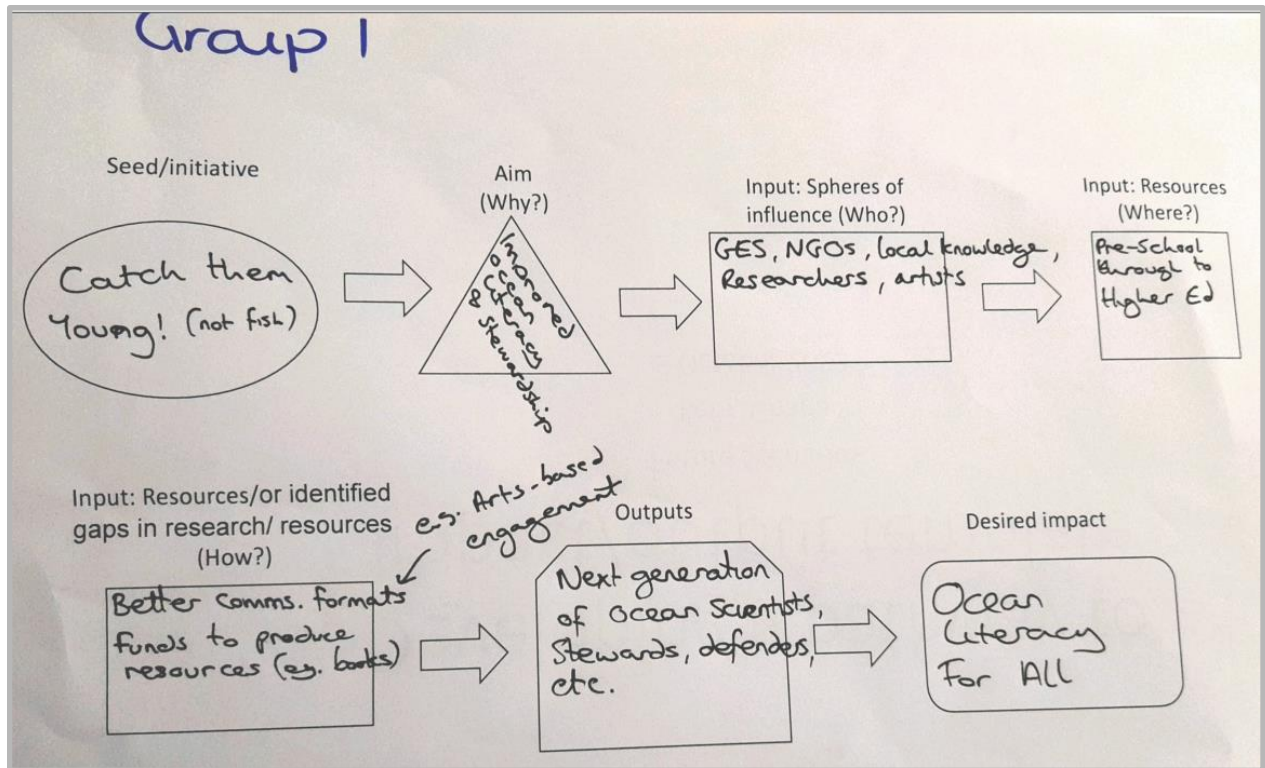 Group 1
Seed/initiative
Catch them
Young! (not fish)
Aim
(Why?)
Improved
ocean
literacy
& stewardship
Input: Spheres of
influence (Who?)
GES, NGOs, local knowledge,
Researchers, artists
Input: Resources
(Where?)
Pre-School
through to
Higher Ed
Input: Resources/or identified
gaps in research/ resources
(How?)
e.g. Arts-based
engagement
Better comms. formats
funds to produce
resources (eg. books)
Outputs
Next generation
of Ocean Scientists,
Stewards, defenders,
etc.
Desired impact
Ocean
Literacy
For All